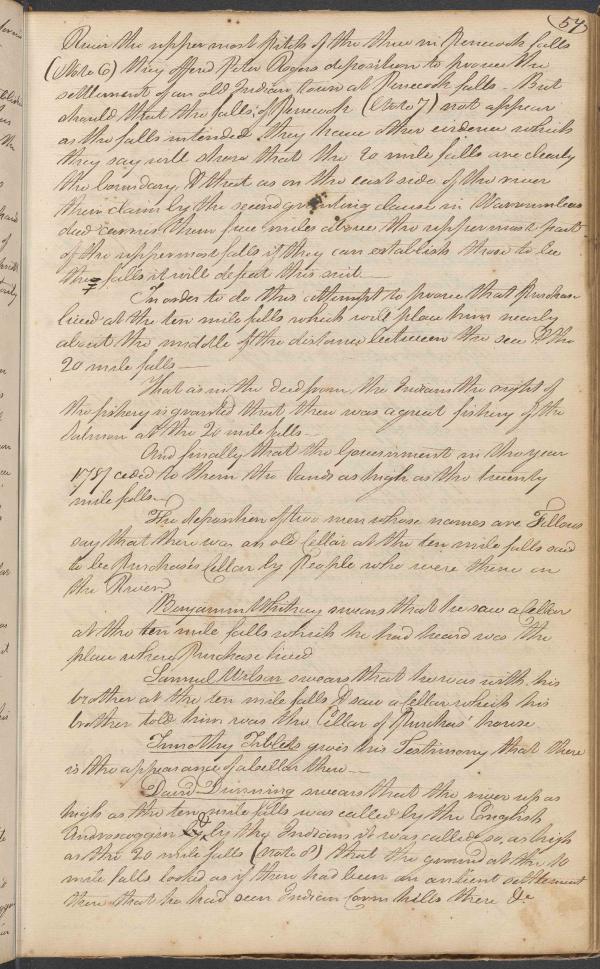 57
River the upper most pitch of the three in Pennecook falls
(Note 6) they offerd Peter Rogers deposition to proove the
settlement of an old Indian town at Pennecook falls. But
should that the falls of Pennecook (Note 7) not appear
as the falls intended they have other evidence which
they say will shew that the 20 mile falls are clearly
the boundary & that as on the east side of the river
their claim by the second granting clause in Warrumbees
deed carries them five miles above the upper most part
of the uppermost falls if they can establish these to be
the falls it will defeat this suit
In order to do this attempt to proove that Purchase
lived at the ten mile falls which will place him nearly
about the middle of the distance between the sea & the
20 mile falls —
That as in the deed from the Indians the right of
the fishery is granted that there was a great fishery of the
Salmon at the 20 mile falls —
And finally that the Government in the year
1787 ceded to them the lands as high as the twenty
mile falls —
The deposition of two men whose names are Fellows
say that there was an old Cellar at the ten mile falls said
to be Purchases Cellar by People who were there on
the River.
Benjamin Whitney swears that he saw a Cellar
at the ten mile falls which he had heard was the
place where Purchase lived
Samuel Wilson swears that he was with his
brother at the ten mile falls & saw a Cellar which his
brother told him was the Cellar of Purchas' house
Timothy Tibbets gives his Testimony that there
is the appearance of a cellar there —
David Dunning swears that the river up as
high as the ten mile falls was called by the English
Androscoggin & by the Indians it was called so, as high
as the 20 mile falls (Note 8) that the ground at the 10
mile falls looked as if there had been an antient settlement
there that he had seen Indian Corn hills there &c